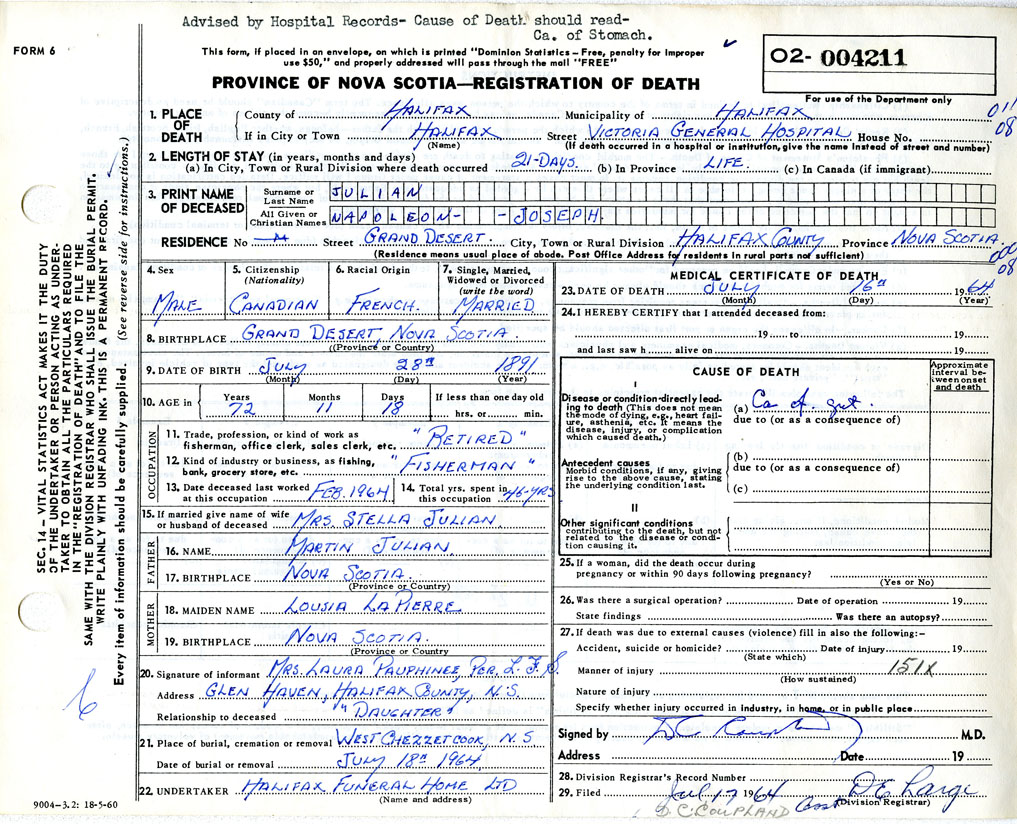 Advised by Hospital Records- Cause of Death should read-
Ca. of Stomach.
FORM 6
This form, if placed in an envelope, on which is printed "Dominion Statistics - Free, penalty for improper
use $50," and properly addressed will pass through the mail "FREE"
O2- 004211
PROVINCE OF NOVA SCOTIA—REGISTRATION OF DEATH
For use of the Department only
011
08
1. PLACE OF DEATH
County of HALIFAX Municipality of HALIFAX
If in City or Town HALIFAX Street VICTORIA GENERAL HOSPITAL House No.
(Name) (If death occurred in a hospital or institution, give the name instead of street and number)
2. LENGTH OF STAY (in years, months and days)
(a) In City, Town or Rural Division where death occurred 21-DAYS. (b) In Province LIFE. (c) In Canada (if immigrant)
3. PRINT NAME OF DECEASED
Surname or Last Name JULIAN
All Given or Christian Names NAPOLEON- -JOSEPH.
RESIDENCE No Street GRAND DESERT City, Town or Rural Division HALIFAX COUNTY Province NOVA SCOTIA.
(Residence means usual place of abode. Post Office Address for residents in rural parts not sufficient)
08
4. Sex
MALE
5. Citizenship
(Nationality)
CANADIAN
6. Racial Origin
FRENCH.
7. Single, Married,
Widowed or Divorced
(write the word)
MARRIED
8. BIRTHPLACE GRAND DESERT, NOVA SCOTIA.
(Province or Country)
9. DATE OF BIRTH JULY 28TH 1891
(Month) (Day) (Year)
10. AGE in Years Months Days If less than one day old
72 11 18 hrs. or min.
OCCUPATION
11. Trade, profession, or kind of work as
fisherman, office clerk, sales clerk, etc. "RETIRED"
12. Kind of industry or business, as fishing,
bank, grocery store, etc. "FISHERMAN"
13. Date deceased last worked
at this occupation FEB. 1964
14. Total yrs. spent in
this occupation 46-YRS
15. If married give name of wife
or husband of deceased MRS. STELLA JULIAN
FATHER
16. NAME MARTIN JULIAN
17. BIRTHPLACE NOVA SCOTIA.
(Province or Country)
MOTHER
18. MAIDEN NAME LOUSIA LAPIERRE
19. BIRTHPLACE NOVA SCOTIA.
(Province or Country)
20. Signature of informant MRS. LAURA PAUPHINEE, PER. L.F.S.
Address GLEN HAVEN, HALIFAX COUNTY, N.S.
Relationship to deceased "DAUGHTER"
21. Place of burial, cremation or removal WEST CHEZZETCOOK, N.S
Date of burial or removal JULY 18TH 1964
22. UNDERTAKER HALIFAX FUNERAL HOME LTD
(Name and address)
9004-3.2: 18-5-60
MEDICAL CERTIFICATE OF DEATH
23. DATE OF DEATH JULY 16TH 1964
(Month) (Day) (Year)
24. I HEREBY CERTIFY that I attended deceased from:
19 to 19
and last saw h alive on 19
CAUSE OF DEATH
Approximate
interval be-
tween onset
and death
I
Disease or condition directly lead-
ing to death (This does not mean
the mode of dying, e.g., heart fail-
ure, asthenia, etc. It means the
disease, injury, or complication
which caused death.)
(a) Ca of gut
due to (or as a consequence of)
Antecedent causes
Morbid conditions, if any, giving
rise to the above cause, stating
the underlying condition last.
(b)
due to (or as a consequence of)
(c)
II
Other significant conditions
contributing to the death, but not
related to the disease or condi-
tion causing it.
25. If a woman, did the death occur during
pregnancy or within 90 days following pregnancy?
(Yes or No)
26. Was there a surgical operation? Date of operation 19
State findings Was there an autopsy?
27. If death was due to external causes (violence) fill in also the following:-
Accident, suicide or homicide? Date of injury 19
(State which)
Manner of injury 151X
(How sustained)
Nature of injury
Specify whether injury occurred in industry, in home, or in public place
Signed by DC Coupland M.D.
Address Date 19
28. Division Registrar's Record Number
29. Filed Jul 17 1964 Asst
(Division Registrar)
D.C. COUPLAND
SEC. 14 - VITAL STATISTICS ACT MAKES IT THE DUTY
OF THE UNDERTAKER OR PERSON ACTING AS UNDER-
TAKER TO OBTAIN ALL THE PARTICULARS REQUIRED
IN THE "REGISTRATION OF DEATH" AND TO FILE THE
SAME WITH THE DIVISION REGISTRAR WHO SHALL ISSUE THE BURIAL PERMIT.
WRITE PLAINLY WITH UNFADING INK. THIS IS A PERMANENT RECORD.
Every item of information should be carefully supplied. (See reverse side for instructions.)
6